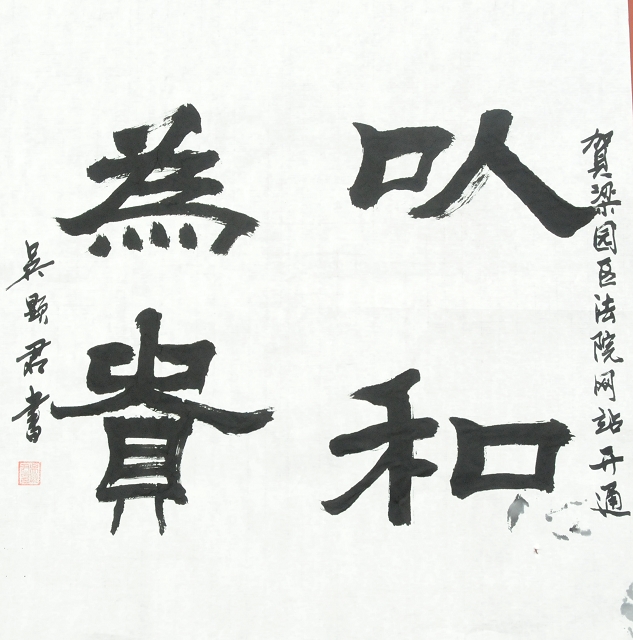 贺梁园区法院网站开通
以和
為貴
吴顯君書